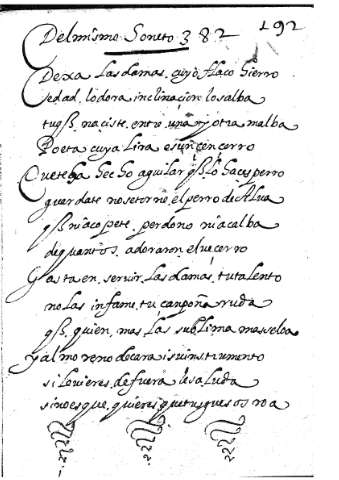 192
Del mismo Soneto 382
Dexa las damas, cuyo flaco hierro
edad, lo dora inclinacion los alba
tu qß. naciste, entre una y otra malba
Poeta cuya Lira es un cencerro
Que te ha hecho aguilar qß. lo haces perro
guardate no se torne, el perro de Alua
qß. ni a copete, perdono ni a calba
de quantos, adoraron, el uecerro
Gasta en, seruir, las damas, tu talento
no las infame, tu canpoña ruda
qß. quien, mas, las sublima mas
y al moreno de cara
si le vieres, de fuera le saluda
sino es que, quieres